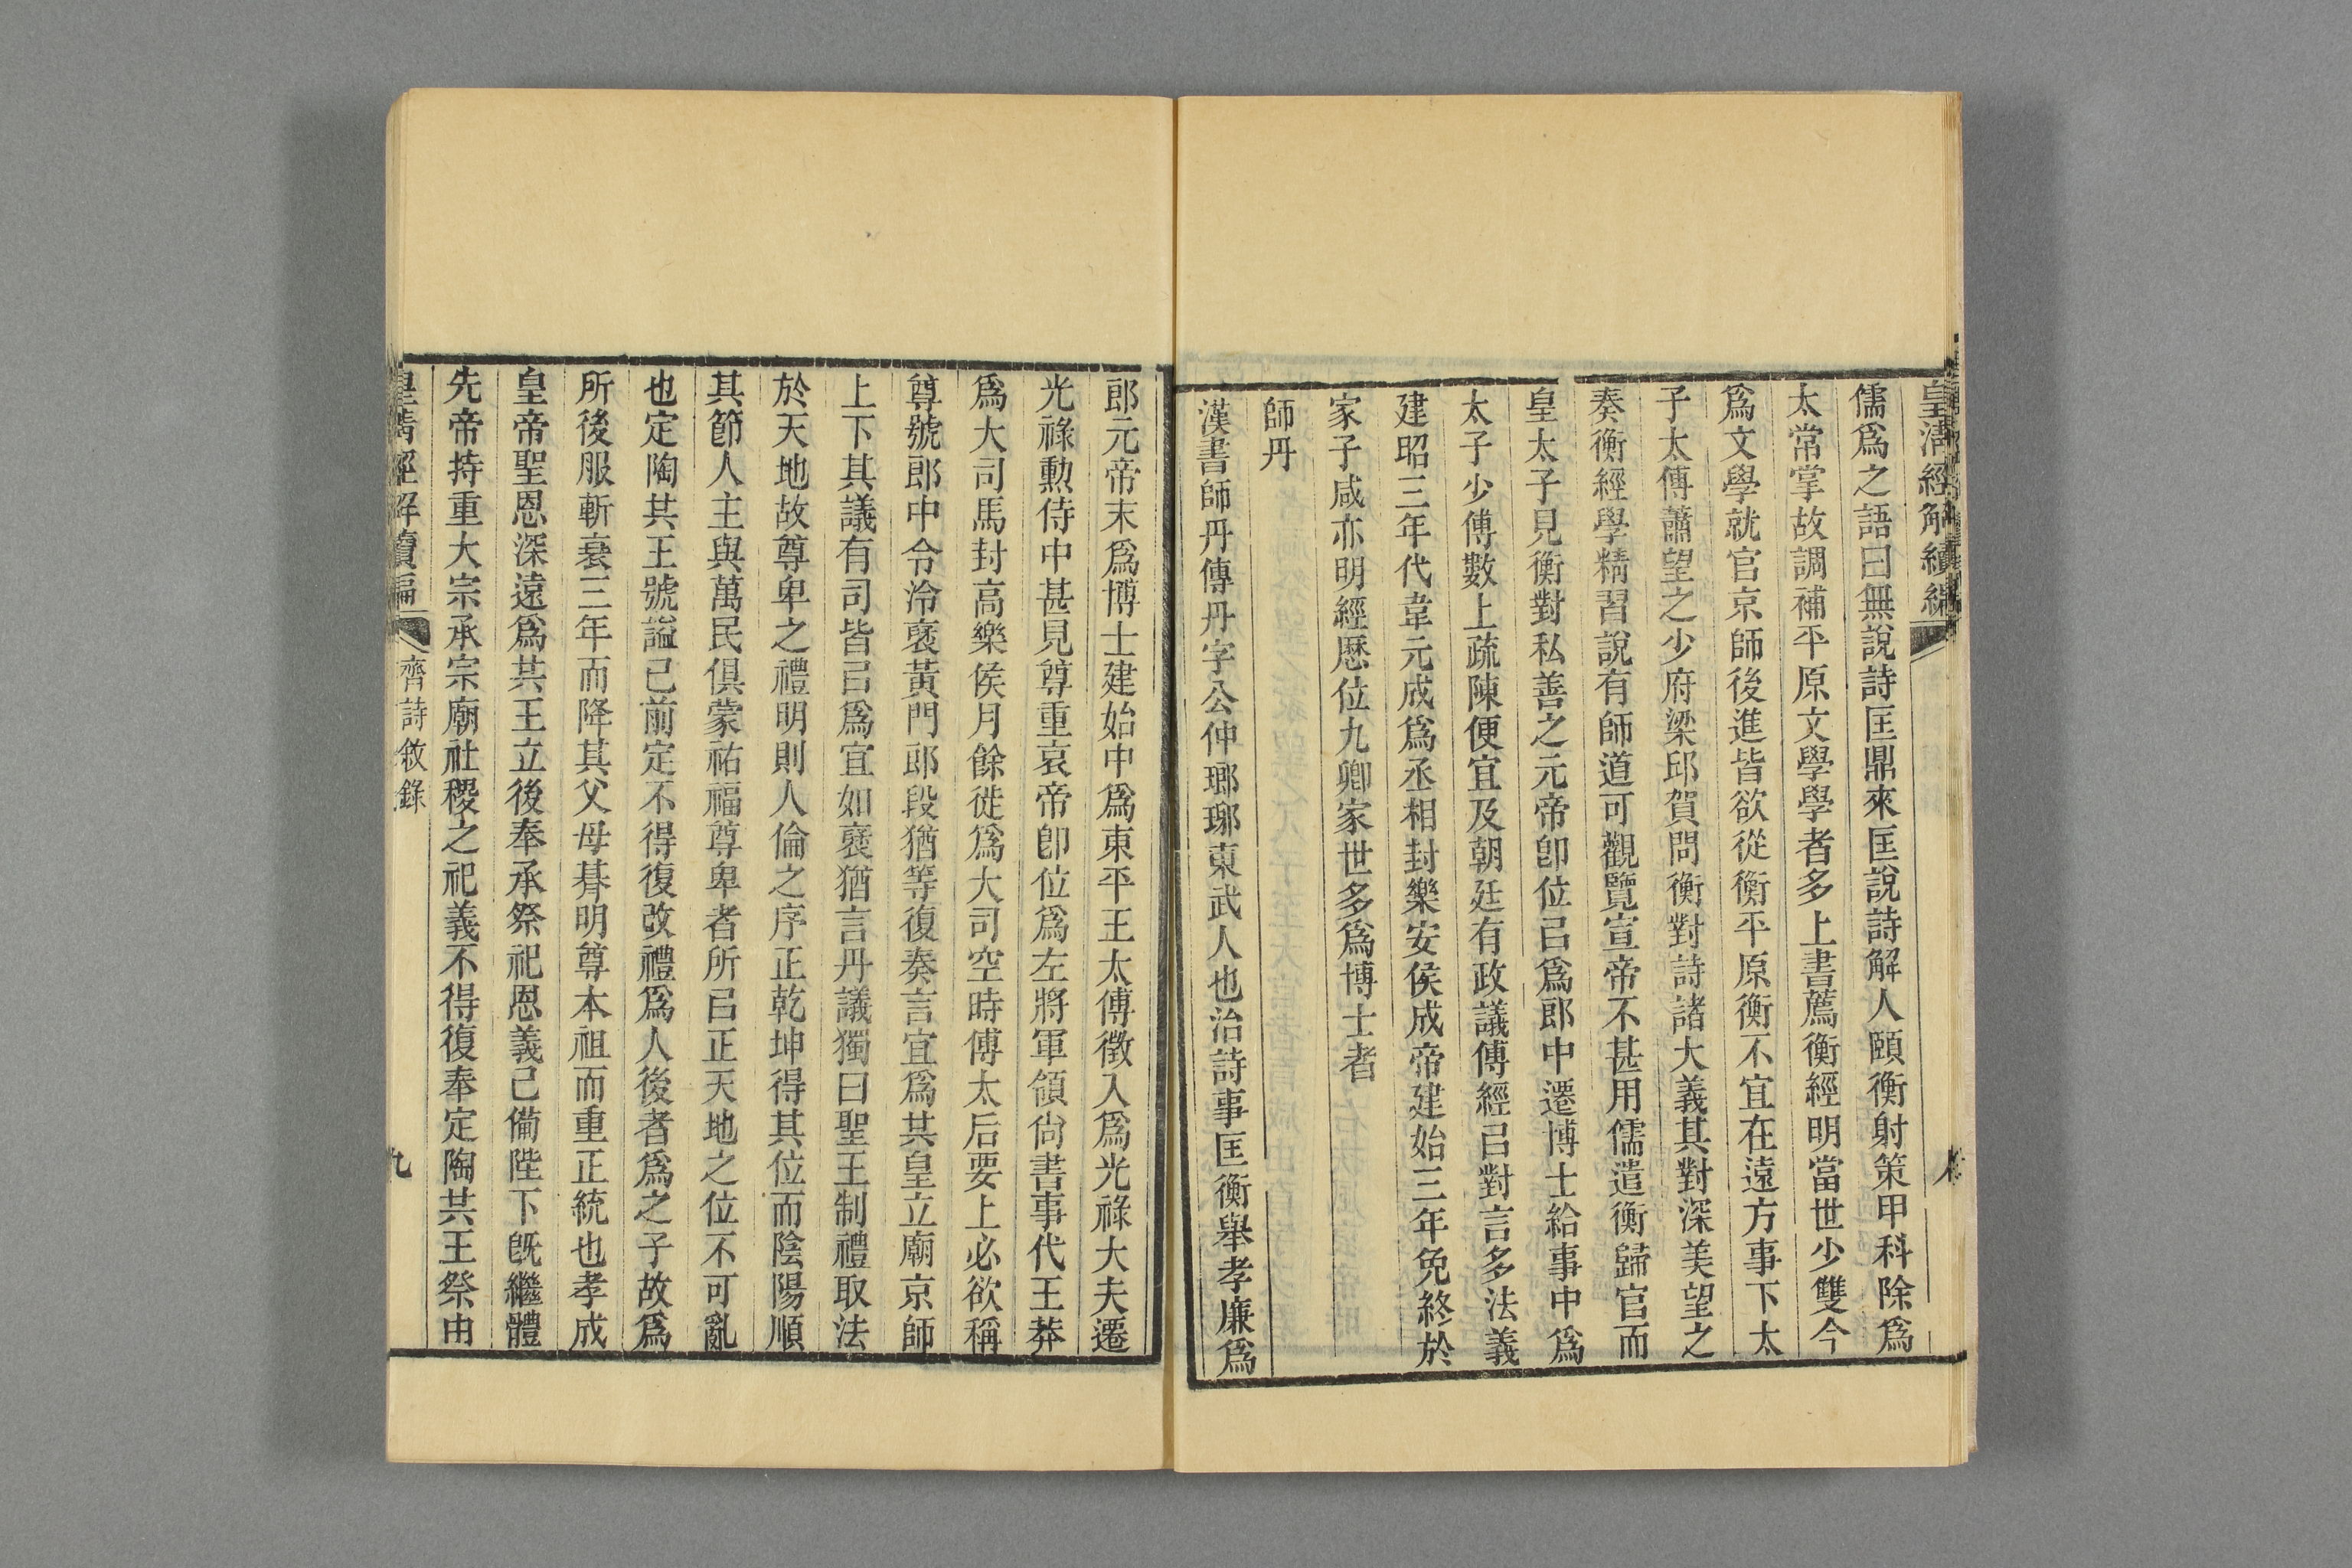 皇清經解續編
儒爲之語曰無說詩匡鼎來匡說詩解人頤衡射策甲科除爲
太常掌故調補平原文學學者多上書薦衡經明當世少雙今
爲文學就官京師後進皆欲從衡平原衡不宜在遠方事下太
子太傅蕭望之少府梁邱賀問衡對詩諸大義其對深美望之
奏衡經學精習說有師道可觀覽宣帝不甚用儒遣衡歸官而
皇太子見衡對私善之元帝卽位㠯爲郎中遷博士給事中爲
太子少傅數上疏陳便宜及朝廷有政議傅經㠯對言多法義
建昭三年代韋元成爲丞相封樂安侯成帝建始三年免終於
家子咸亦明經歷位九卿家世多爲博士者
師丹
漢書師丹傳丹字公仲瑯琊東武人也治詩事匡衡舉孝廉爲
郎元帝末爲博士建始中爲東平王太傅徵入爲光祿大夫遷
光祿勳侍中甚見尊重哀帝卽位爲左將軍領尙書事代王莽
爲大司馬封高樂侯月餘徙爲大司空時傅太后要上必欲稱
尊號郎中令泠褒黃門郎段猶等復奏言宜爲共皇立廟京師
上下其議有司皆㠯爲宜如褒猶言丹議獨曰聖王制禮取法
於天地故尊卑之禮明則人倫之序正乾坤得其位而陰陽順
其節人主與萬民俱蒙祐福尊卑者所㠯正天地之位不可亂
也定陶共王號諡已前定不得復改禮爲人後者爲之子故爲
所後服斬衰三年而降其父母朞明尊本祖而重正統也孝成
皇帝聖恩深遠爲共王立後奉承祭祀恩義已備陛下旣繼體
先帝持重大宗承宗廟社稷之祀義不得復奉定陶共王祭由
皇清經解續編 齊詩敘錄 九